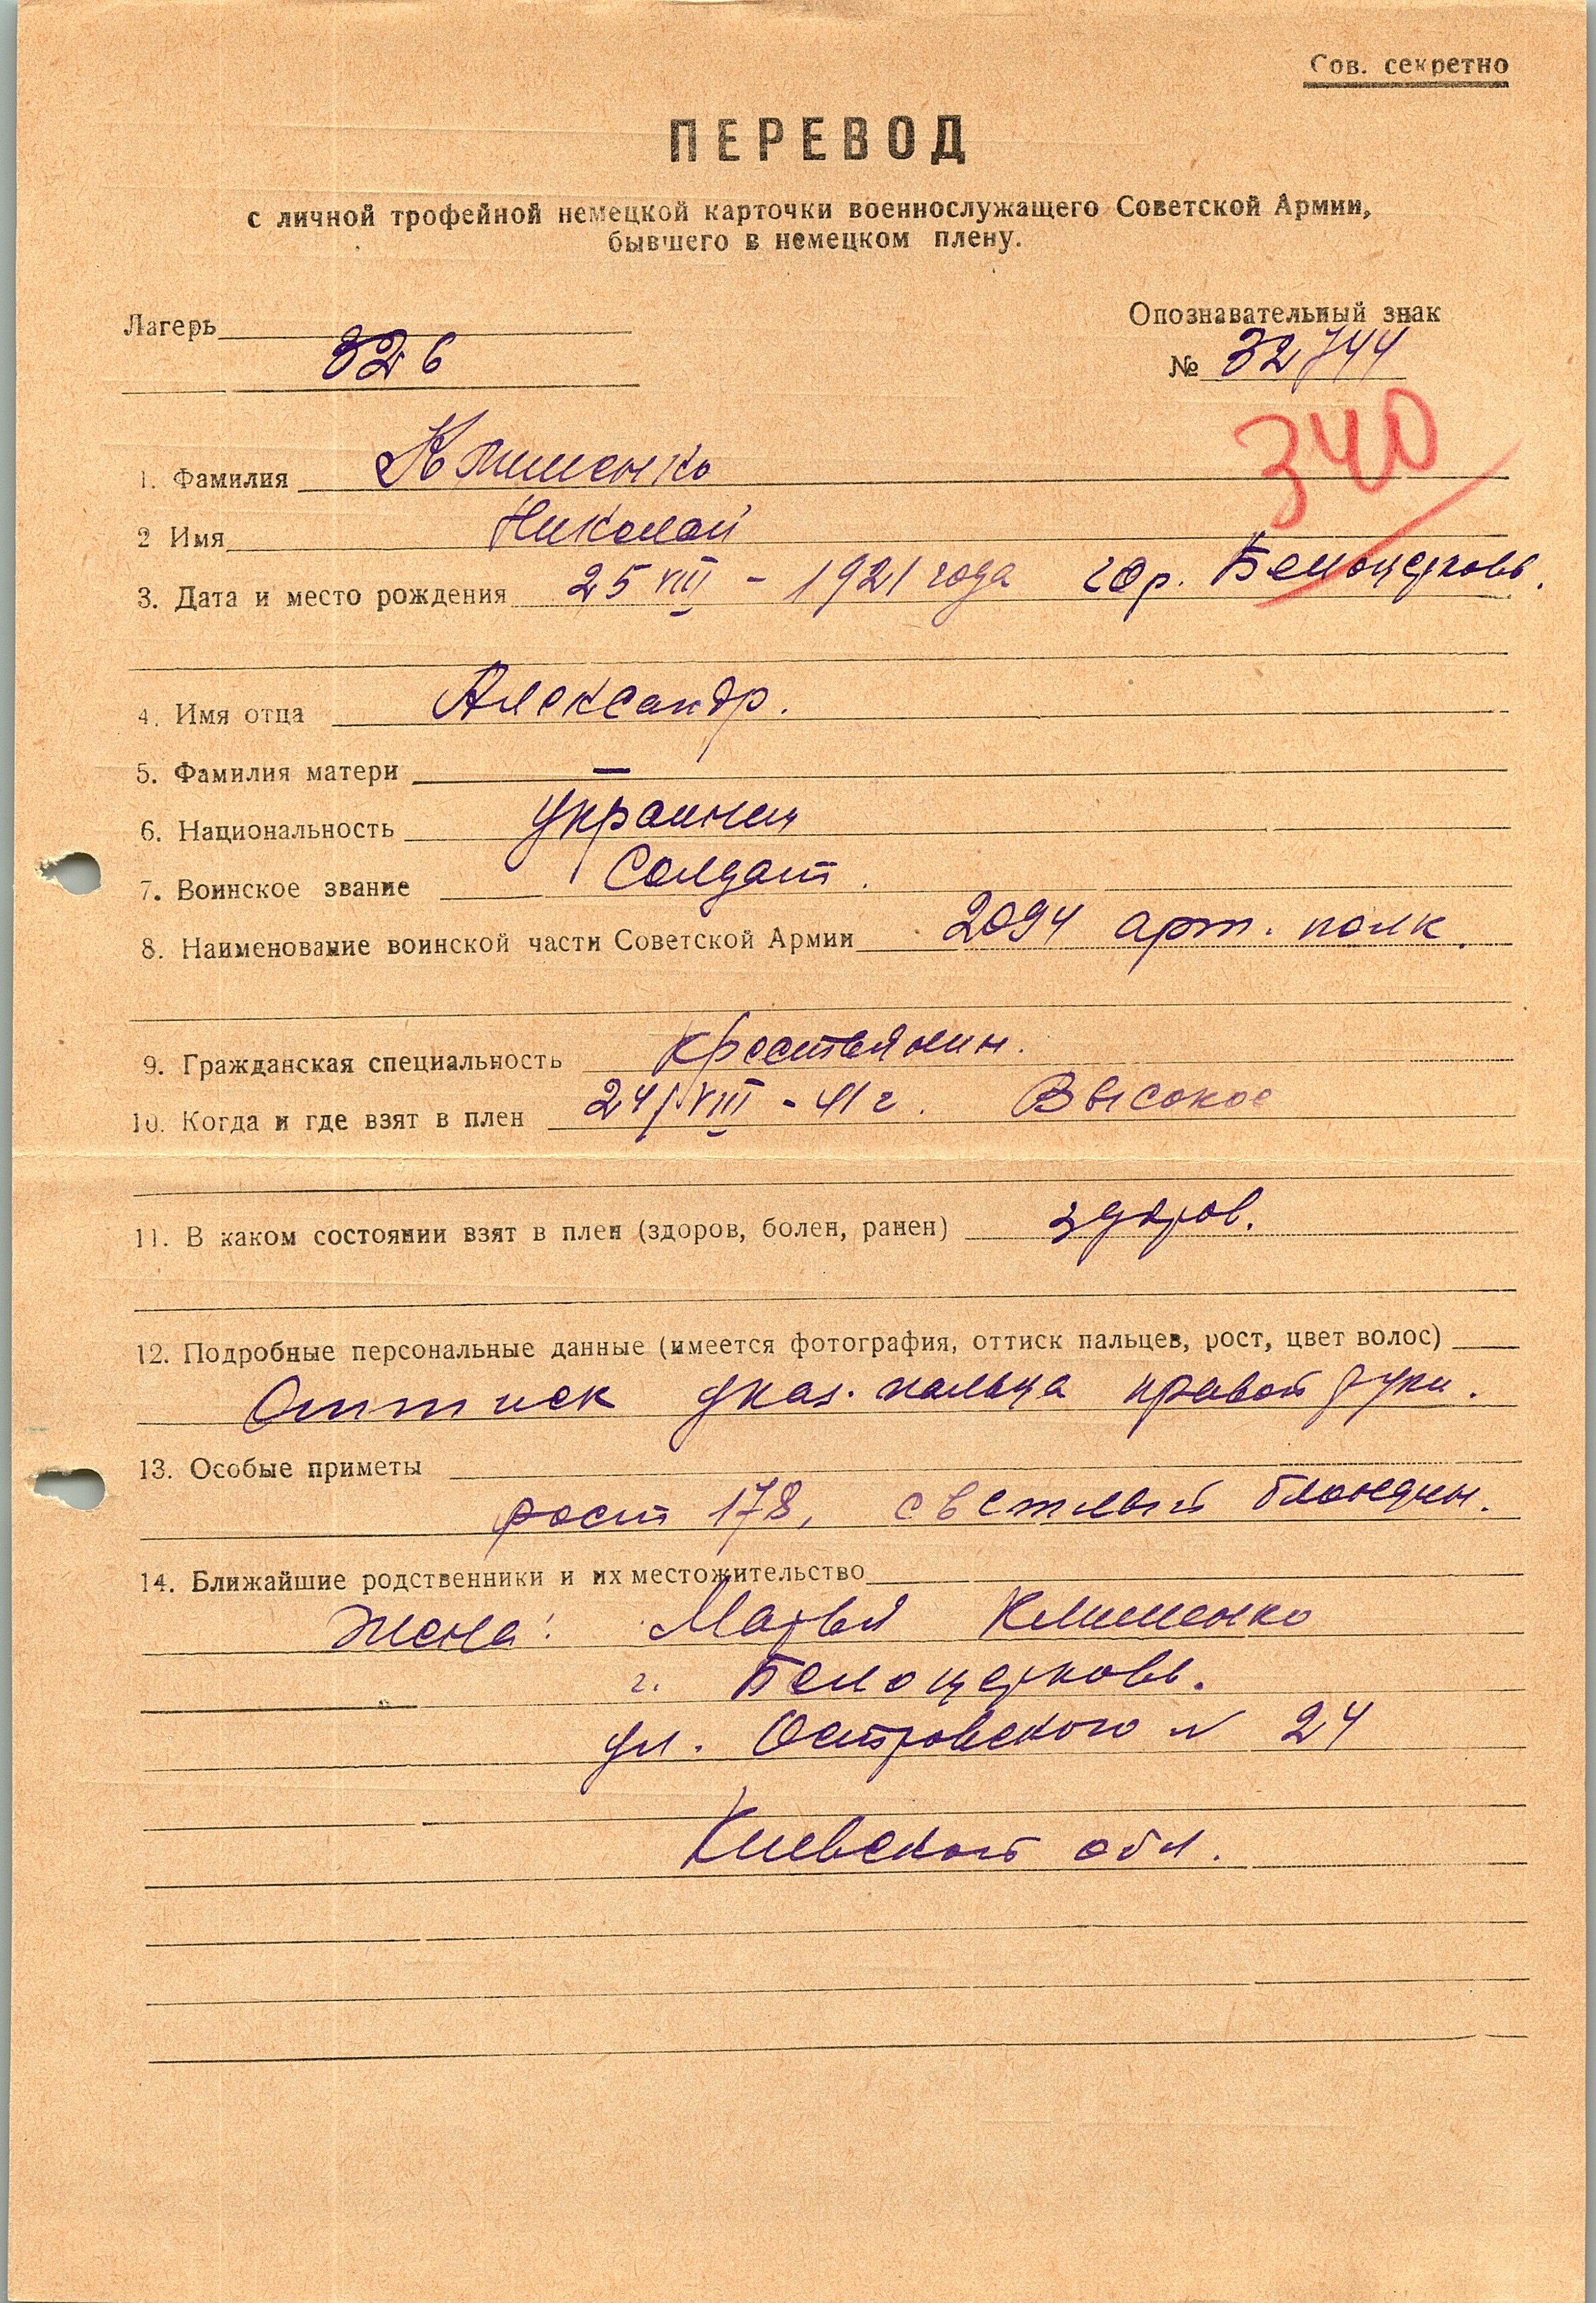 Сов. секретно
ПЕРЕВОД
с личной трофейной немецкой карточки военнослужащего Советской Армии,
бывшего в немецком плену.
Лагерь 326
Опознавательный знак
№ 32744
340
1. Фамилия Клименко
2 Имя Николай
3. Дата и место рождения 25 VIII - 1921 года гор. Белоцерковь.
4. Имя отца Александр.
5. Фамилия матери —
6. Национальность Украинец
7. Воинское звание Солдат.
8. Наименование воинской части Советской Армии 2094 арт. полк.
9. Гражданская специальность крестьянин.
10. Когда и где взят в плен 24/VIII - 41 г. Высокое
11. В каком состоянии взят в плен (здоров, болен, ранен) здоров.
12. Подробные персональные данные (имеется фотография, оттиск пальцев, рост, цвет волос)
Оттиск указ. пальца правой руки.
13. Особые приметы
рост 178, светлый блондин.
14. Ближайшие родственники и их местожительство
Жена: Марья Клименко
г. Белоцерковь.
ул. Островского N 24
Киевской обл.